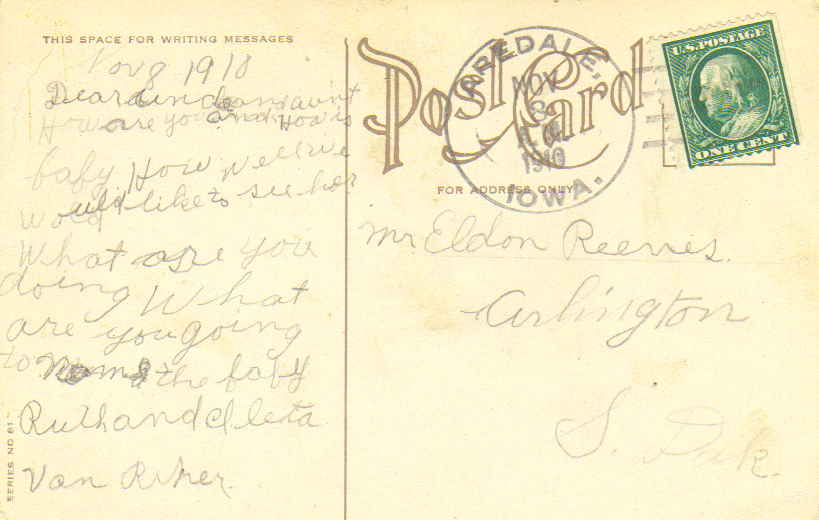 THIS SPACE FOR WRITING MESSAGES
Nov 8 1910
Dear uncle and aunt
How are you and How is
baby How well we
would like to see her
What are you
doing What
are you going
to name the baby
Ruth and Cleta
Van Riper.
SERIES NO 61
Post Card
AREDALE,
NOV
8
1910
IOWA.
U.S. POSTAGE
ONE CENT
FOR ADDRESS ONLY
Mr. Eldon Reeves.
Arlington
S. Dak.